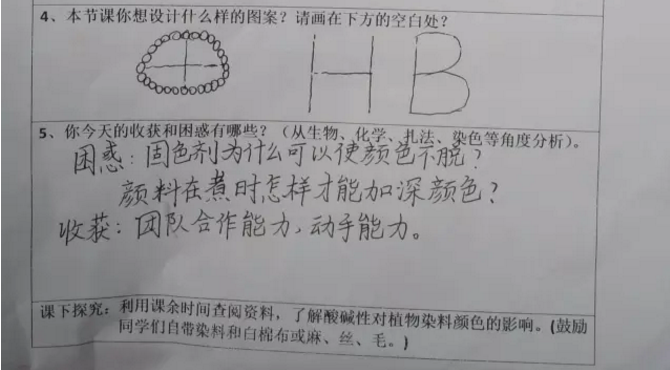 4、本节课你想设计什么样的图案？请画在下方的空白处？
H B
5、你今天的收获和困惑有哪些？（从生物、化学、扎法、染色等角度分析）。
困惑：固色剂为什么可以使颜色不脱？
颜料在煮时怎样才能加深颜色？
收获：团队合作能力、动手能力。
课下探究：利用课余时间查阅资料，了解酸碱性对植物染料颜色的影响。(鼓励
同学们自带染料和白棉布或麻、丝、毛。)